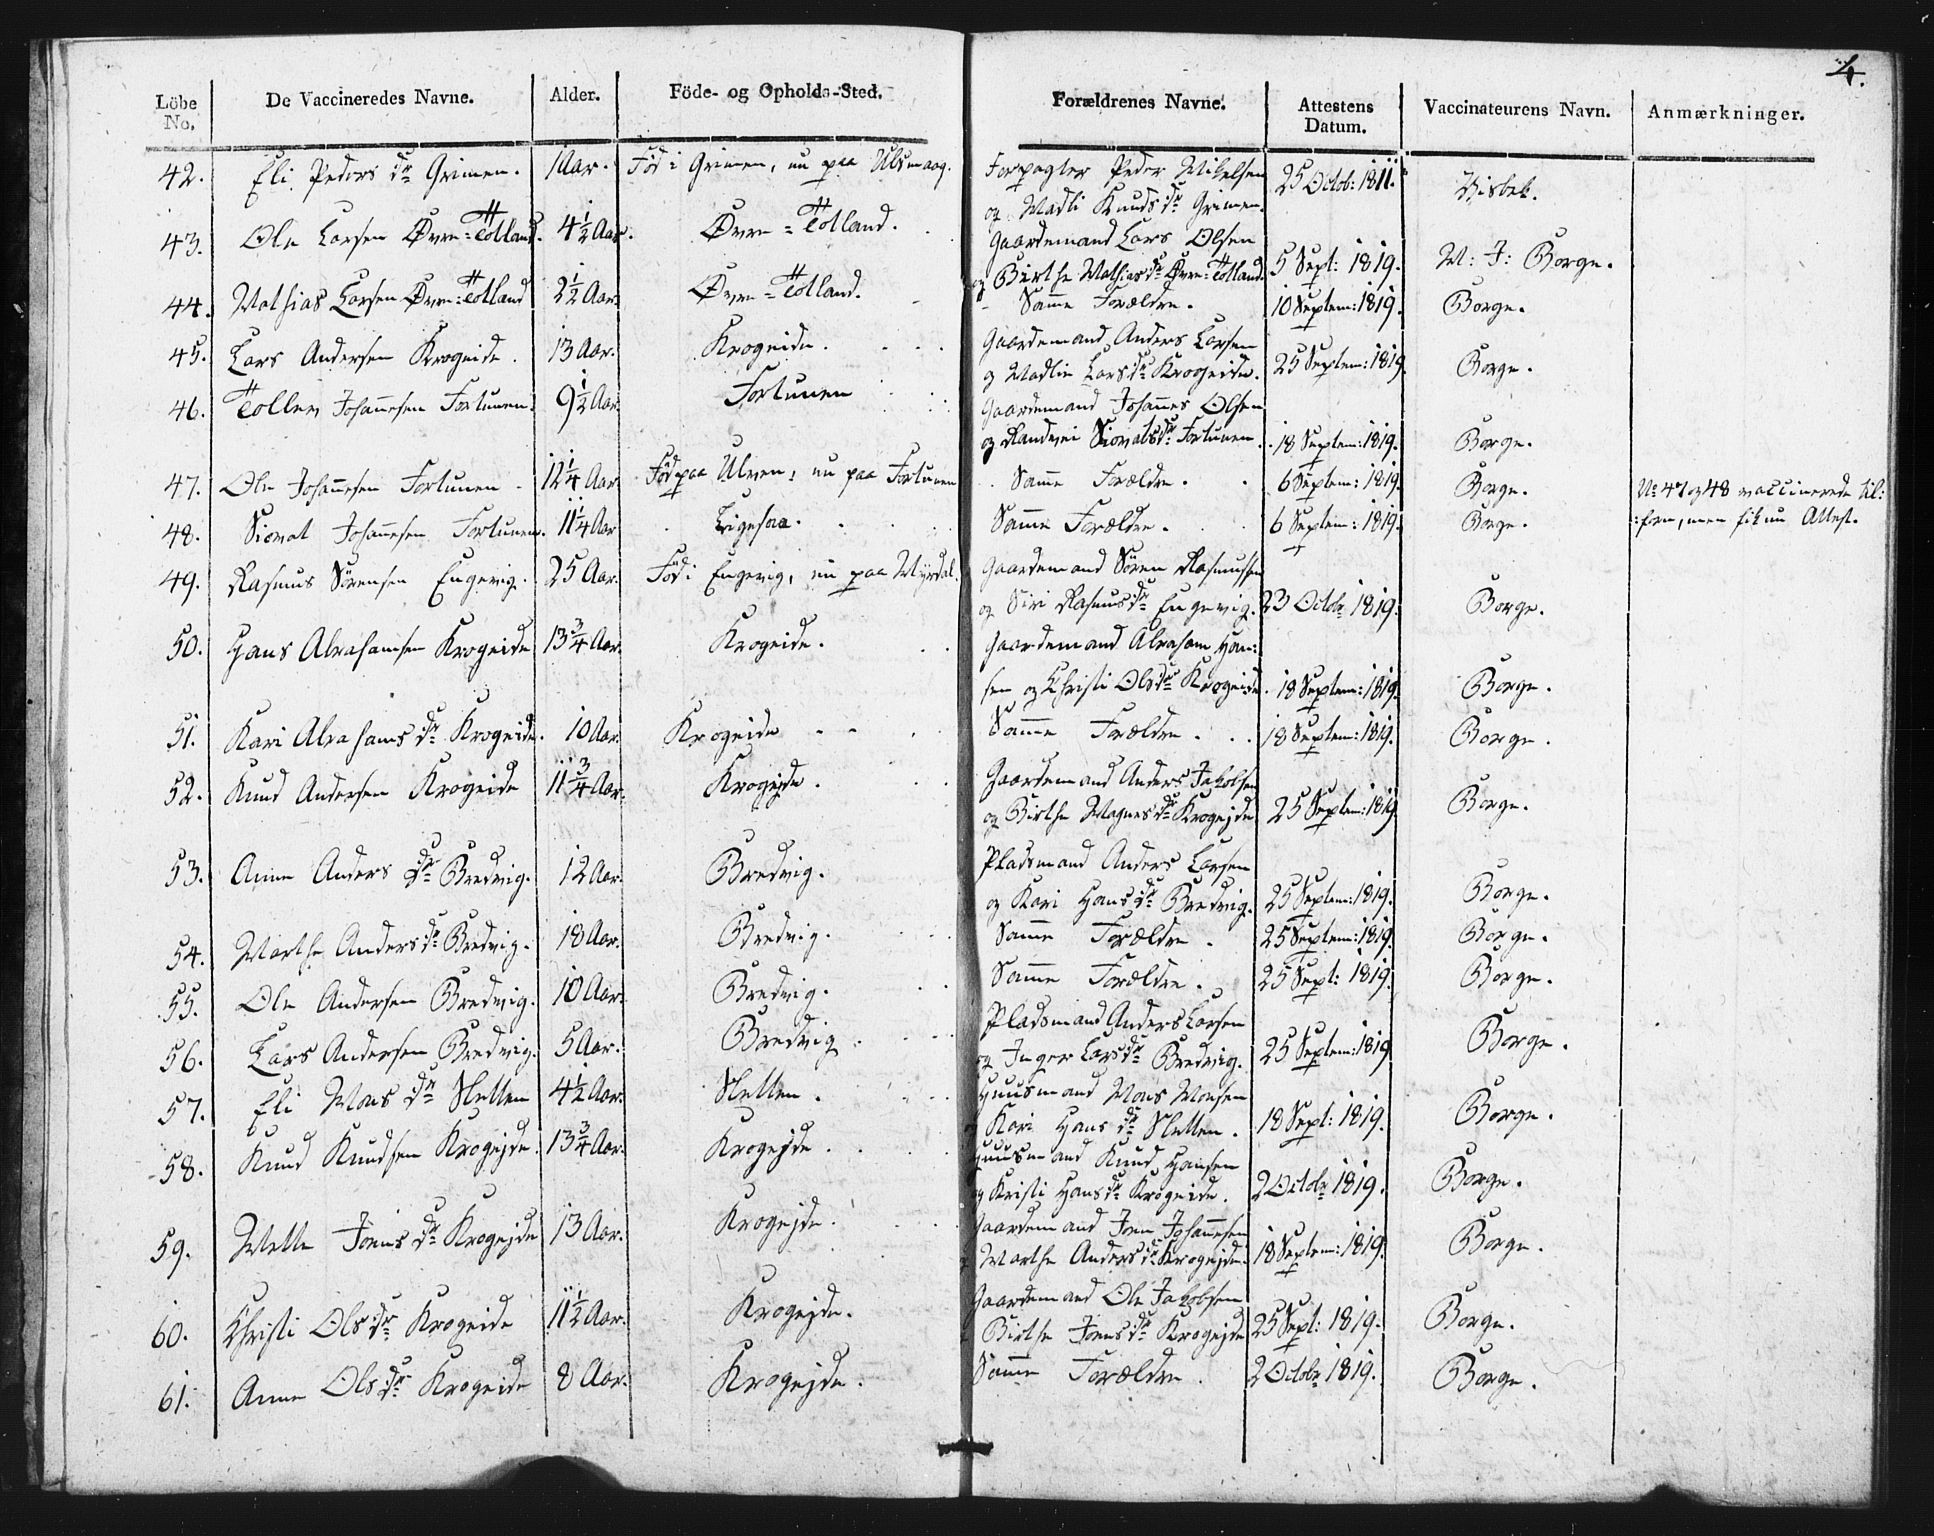 4.
Löbe No. De Vaccineredes Navne. Alder. Föde- og Opholds-Sted. Forældrenes Navne. Attestens Datum. Vaccinateurens Navn. Anmærkninger.
42. Eli Peders dr Grimen. 1 Aar. Föd i Grimen, nu paa Ulsmaag. Forpagter Peder Mikelsen 25 Octob: 1811. Visbek.
og Madli Knuds dr Grimen.
43. Ole Larsen Øvre-Totland. 4 1/2 Aar. Øvre-Totland. Gaardemand Lars Olsen
og Birthe Mathias dr Øvre-Totland. 5 Sept: 1819. M: J: Borge.
44. Mathias Larsen Øvre-Totland 2 1/2 Aar. Øvre-Totland. Samme Forældre. 10 Septem: 1819. Borge.
45. Lars Andersen Krogeide. 13 Aar. Krogeide. Gaardemand Anders Larsen
og Madlie Larsdr Krogeide. 25 Septem: 1819. Borge.
46. Tollev Johannesen Fortunen. 9 1/2 Aar. Fortunen Gaardemand Johannes Olsen
og Randvei Siovatsdr Fortunen. 18 Septem: 1819. Borge.
47. Ole Johannesen Fortunen 12 1/4 Aar. Föd paa Ulven, nu paa Fortunen Samme Forældre. 6 Septem: 1819. Borge. No 47 og 48 vaccinerede til:
48. Siovat Johannesen Fortunen. 11 1/4 Aar Ligesaa. Samme Forældre. 6 Septem: 1819. Borge. :forn, men fik nu Attest.
49. Rasmus Sörensen Engevig. 25 Aar. Föd i Engevig, nu paa Myrdal. Gaardemand Sören Rasmussen
og Siri Rasmusdr Engevig. 23 Octobr 1819. Borge.
50. Hans Abrahamsen Krogeide 13 3/4 Aar. Krogeide. Gaardemand Abraham Han:
sen og Christi Olsdr Krogeide. 18 Septem: 1819. Borge.
51. Kari Abrahams dr Krogeide. 10 Aar. Krogeide Samme Forældre. 18 Septem: 1819. Borge.
52. Knud Andersen Krogeide 11 3/4 Aar. Krogejde. Gaardemand Anders Jakobsen
og Birthe Magnesdr Krogejde 25 Septem: 1819 Borge.
53. Anne Anders dr Bredvig. 12 Aar. Bredvig. Pladsmand Anders Larsen
og Kari Hansdr Bredvig. 25 Septem: 1819. Borge.
54. Marthe Andersdr Bredvig. 18 Aar. Bredvig. Samme Forældre. 25 Septem: 1819. Borge.
55. Ole Andersen Bredvig. 10 Aar. Bredvig. Samme Forældre. 25 Sept: 1819. Borge.
56. Lars Andersen Bredvig. 5 Aar. Bredvig. Pladsmand Anders Larsen
og Inger Larsdr Bredvig. 25 Septem: 1819 Borge.
57. Eli Mons dr Sletten 4 1/2 Aar. Sletten. Huusmand Mons Monsen
Kari Hans dr Sletten. 18 Sept: 1819. Borge.
58. Knud Knudsen Krogejde. 13 3/4 Aar. Krogejde. Huusmand Knud Hansen
og Kristi Hansdr Krogeide. 2 Octobr 1819. Borge.
59. Mette Joensdr Krogejde 13 Aar. Krogejde. Gaardemand Joen Johannesen
Marthe Andersdr Krogejde. 18 Septem: 1819. Borge.
60. Christi Olsdr Krogeide 11 1/2 Aar. Krogejde. Gaardemand Ole Jakobsen
Birthe Joensdr Krogejde 25 Sept: 1819. Borge.
61. Anne Olsdr Krogeide 8 Aar. Krogejde. Samme Forældre. 2 Octobr 1819. Borge.